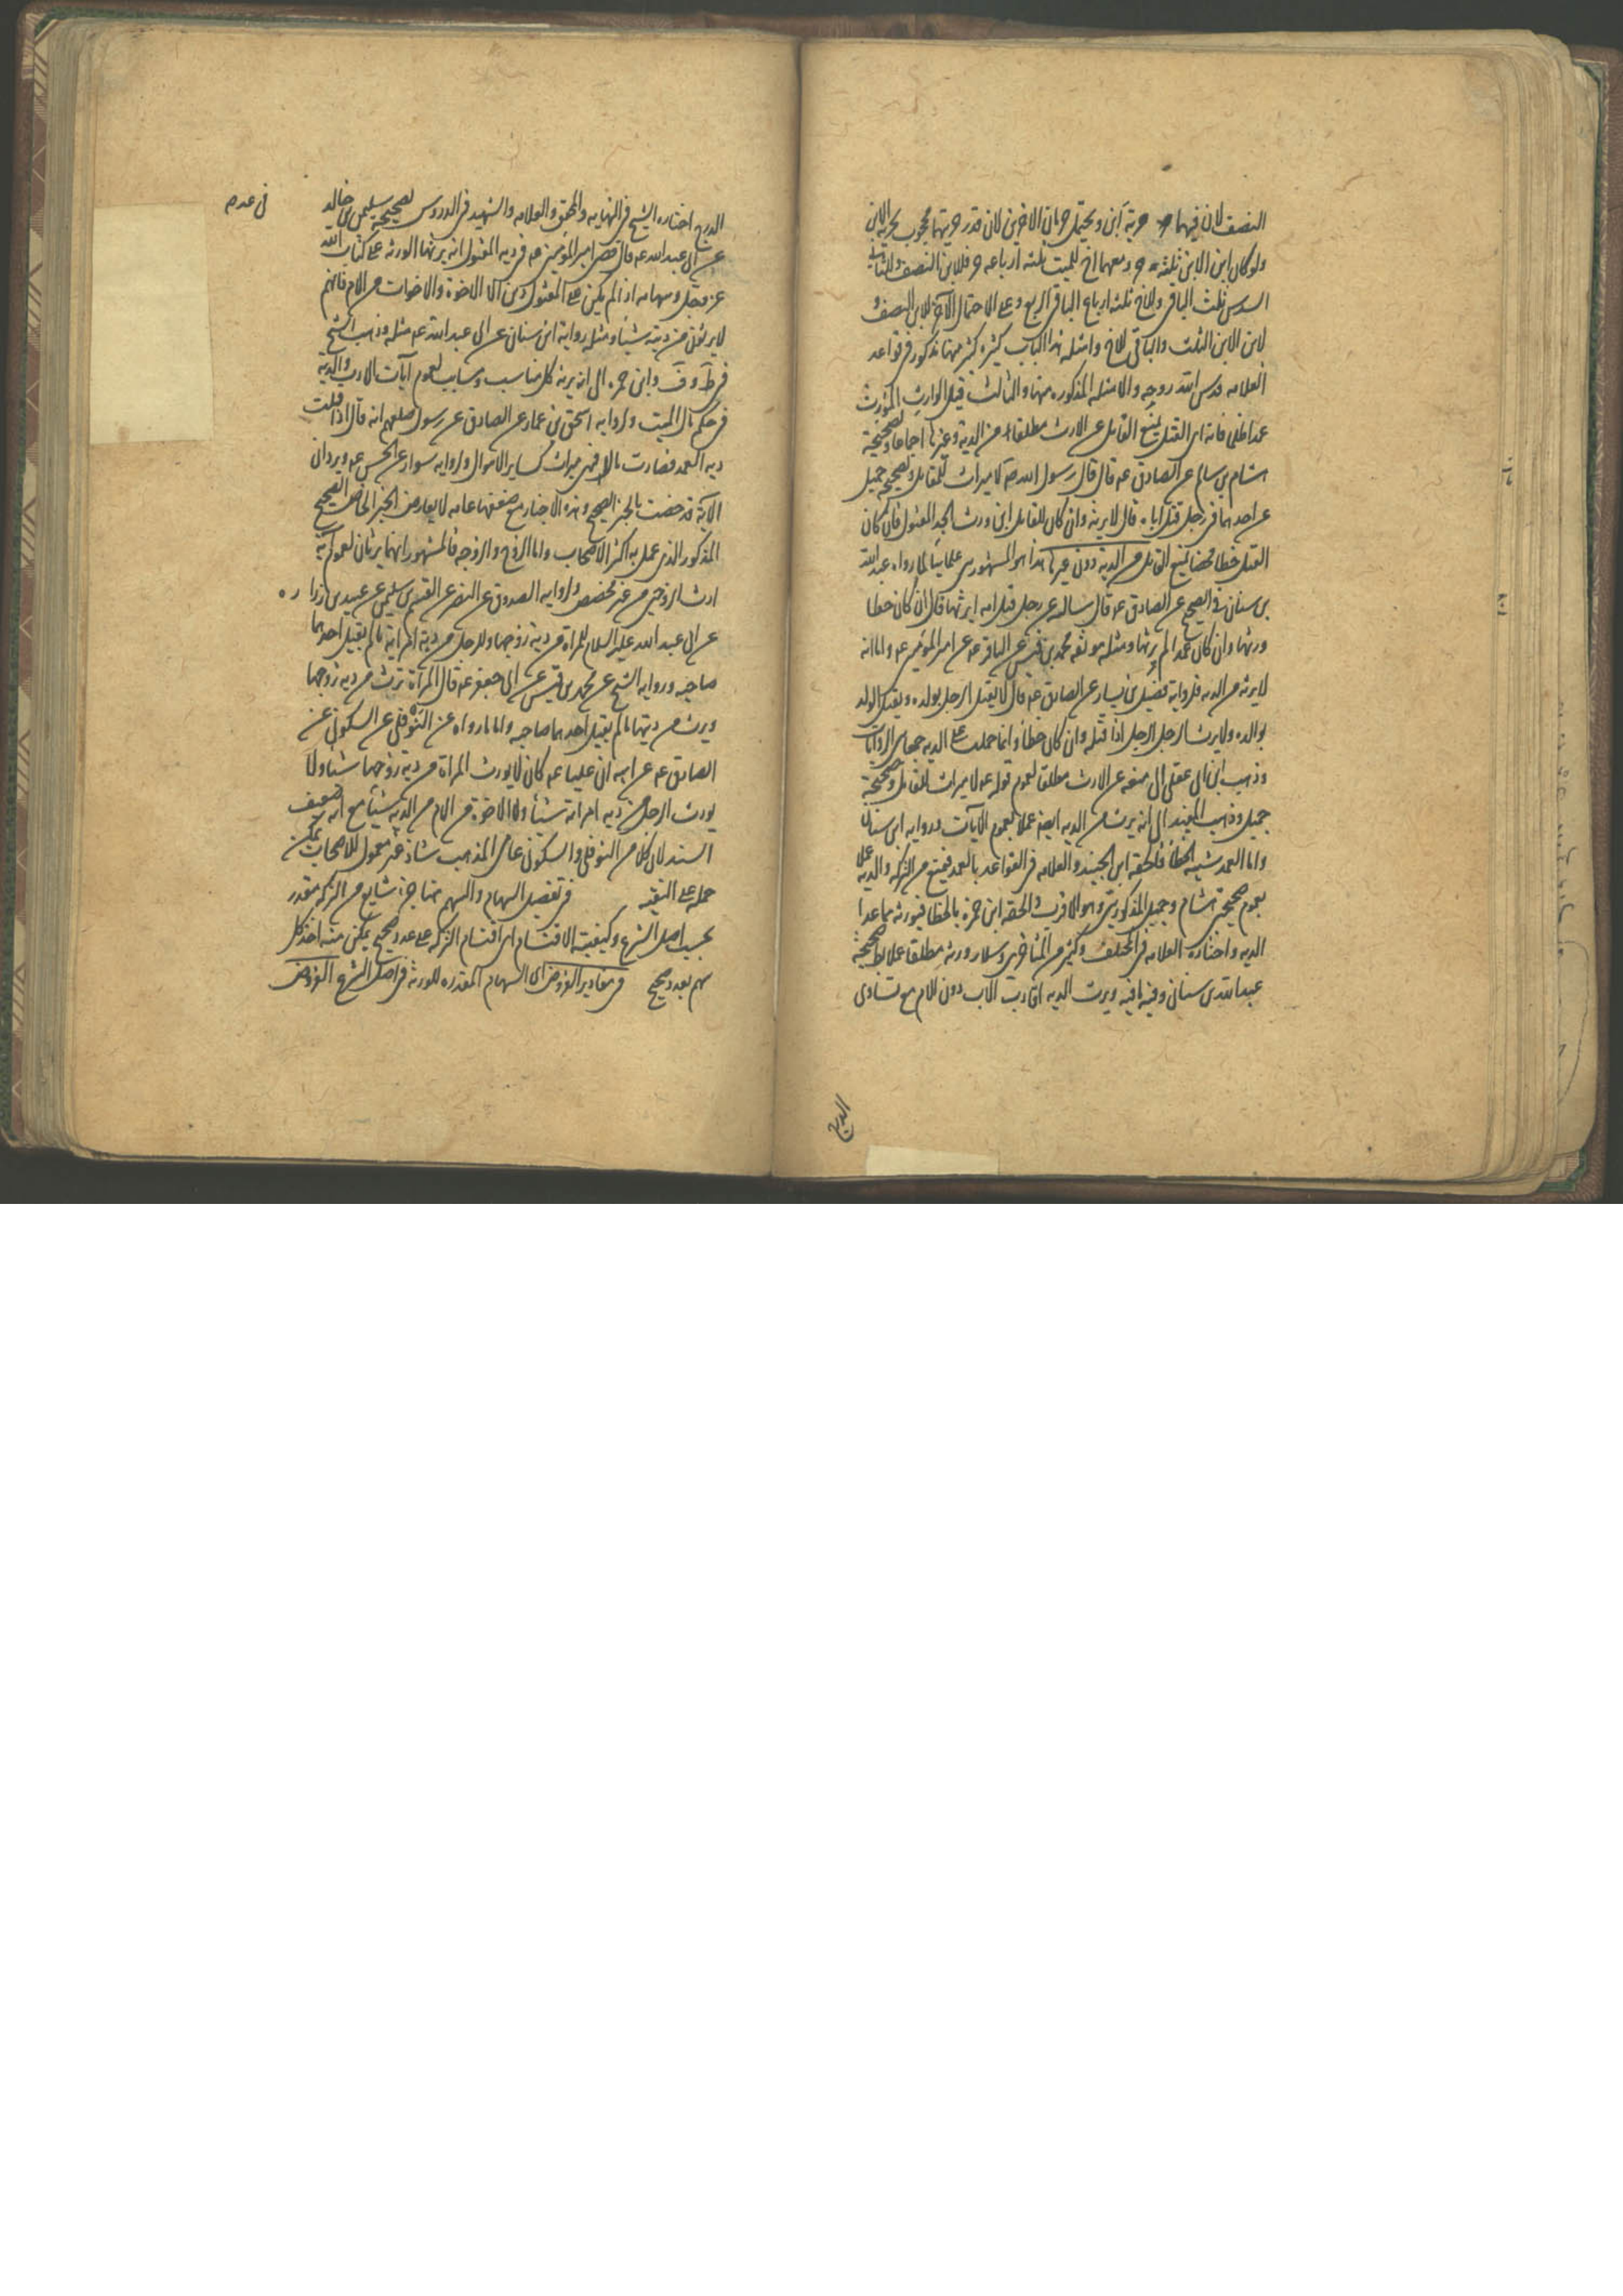 النصف لان فيهما حرية ابن ويحتمل حرمان الاخير لان قدر حريتهما محجوب بحرية الابن
ولو كان ابن الابن ثلثه حر ومعهما اخ للميت ثلثه ارباعه حر فللابن النصف وللثاني
السدس ثلث الباقي وللاخ ثلثه ارباع الباقي الربع وعلى الاحتمال الآخر للابن النصف و
لابن الابن الثلث والباقي للاخ وامثله هذا الباب كثيره كثير منها مذكور في قواعد
العلامه قدس الله روحه والامثله المذكوره منها والثالث قتل الوارث المورث
عمدا ظلما فانه اي القتل يمنع القاتل عن الارث مطلقا من الدية وغيرها اجماعا ولصحيحة
هشام بن سالم عن الصادق عه قال قال رسول الله ص لا ميراث للقاتل وصحيحه جميل
عن احدهما في رجل قتل اباه قال لا يرثه وان كان للقاتل ابن ورث الجد المقتول فان كان
القتل خطا محضا يمنع القاتل من الدية دون غيرها هذا هو المشهور بين علمائنا لما رواه عبد الله
بن سنان في الصحيح عن الصادق عه قال ساله عن رجل قتل امه ايرثها قال ان كان خطا
ورثها وان كان عمدا لم يرثها ومثله موثقه محمد بن قيس عن الباقر عه عن امير المؤمنين عه واما انه
لا يرث من الديه فلرواية فضيل بن يسار عن الصادق عه قال لا يقتل الرجل بولده ويقتل الولد
بوالده ولا يرث الرجل الرجل اذا قتله وان كان خطأ وانما حملت على الديه جمعا بين الروايات
وذهب ابن ابي عقيل الى منعه عن الارث مطلقا لعموم قوله عه لا ميراث للقاتل وصحيحة
جميل وذهب المفيد الى انه يرث من الديه ايضا عملا بعموم الآيات ورواية ابن سنان
واما العمد شبيه الخطأ فالحقه ابن الجنيد والعلامه في القواعد بالعمد فيمنع من التركه والديه عملا
بعموم صحيحتي هشام وجميل المذكورتين وهو الاقرب والحقه ابن حمزه بالخطا فيورثه مما عدا
الديه واختاره العلامه في المختلف وكثير من المتاخرين وسلار ورثه مطلقا عملا بظاهر صحيحة
عبد الله بن سنان وفيه ما فيه ويرث الديه اقارب الاب دون الام مع تساوي
الدرج
الدرج اختاره الشيخ في النهايه والمحقق والعلامه والشهيد في الدروس لصحيحة سليمن بن خالد
عن ابي عبد الله عه قال قضى امير المؤمنين عه في دية المقتول انه يرثها الورثه على كتاب الله
عز وجل وسهامه اذا لم يكن على المقتول دين الا الاخوة والاخوات من الام فانهم
لا يرثون من ديته شيئا ومثله رواية ابن سنان عن ابي عبد الله عه مثله وذهب الشيخ
في ط و ف وابن حمزه الى انه يرثه كل مناسب ومسابب لعموم آيات الارث والديه
في حكم مال الميت ولرواية اسحق بن عمار عن الصادق عن رسول صلعم انه قال اذا قبلت
ديه العمد فصارت مالا فهي ميراث كساير الاموال ولرواية سوار عن الحسن عه ويرد ان
الآية قد خصت بالخبر الصحيح وهذه الاخبار مع ضعفها عامه لا يعارض الخبر الخاص الصحيح
المذكور الذي عمل به اكثر الاصحاب واما الزوج والزوجه فالمشهور انهما يرثان لعموم آية
ارث الزوجين من غير مخصص ولرواية الصدوق عن النضر عن القسم بن سليمن عن عبيد بن زرا ره
عن ابي عبد الله عليه السلام للمراة من دية زوجها وللرجل من دية امراته ما لم يقتل احدهما
صاحبه ورواية الشيخ عن محمد بن قيس عن ابي جعفر عه قال المرأة ترث من دية زوجها
ويرث من ديتها ما لم يقتل احدهما صاحبه واما ما رواه عن النوفلي عن السكوني عن
الصادق عه عن ابيه ان عليا عه كان لا يورث المراة من دية زوجها شيئا ولا
يورث الرجل من دية امراته شيئا ولا الاخوة من الام من الدية شيئا مع انه ضعيف
السند لان كلا من النوفلي والسكوني عامي المذهب شاذ غير معمول للاصحاب يمكن
حمله على التقيه في تفصيل السهام والسهم هنا جزء شايع من التركه مقدر
بحسب اصل الشرع وكيفية الاقتسام اي اقتسام التركه على عدد صحيح يمكن منه اخذ كل
سهم بعدد صحيح في مقادير الفروض اي السهام المقدره للورثه في اصل الشرع الفروض